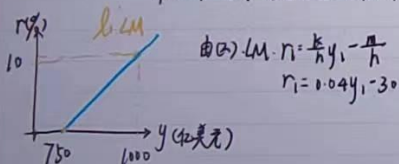 r(%)
LM
10
750
1000
y(亿美元)
由(2).LM. r₁=k/h y₁-m/h
r₁=0.04y₁-30